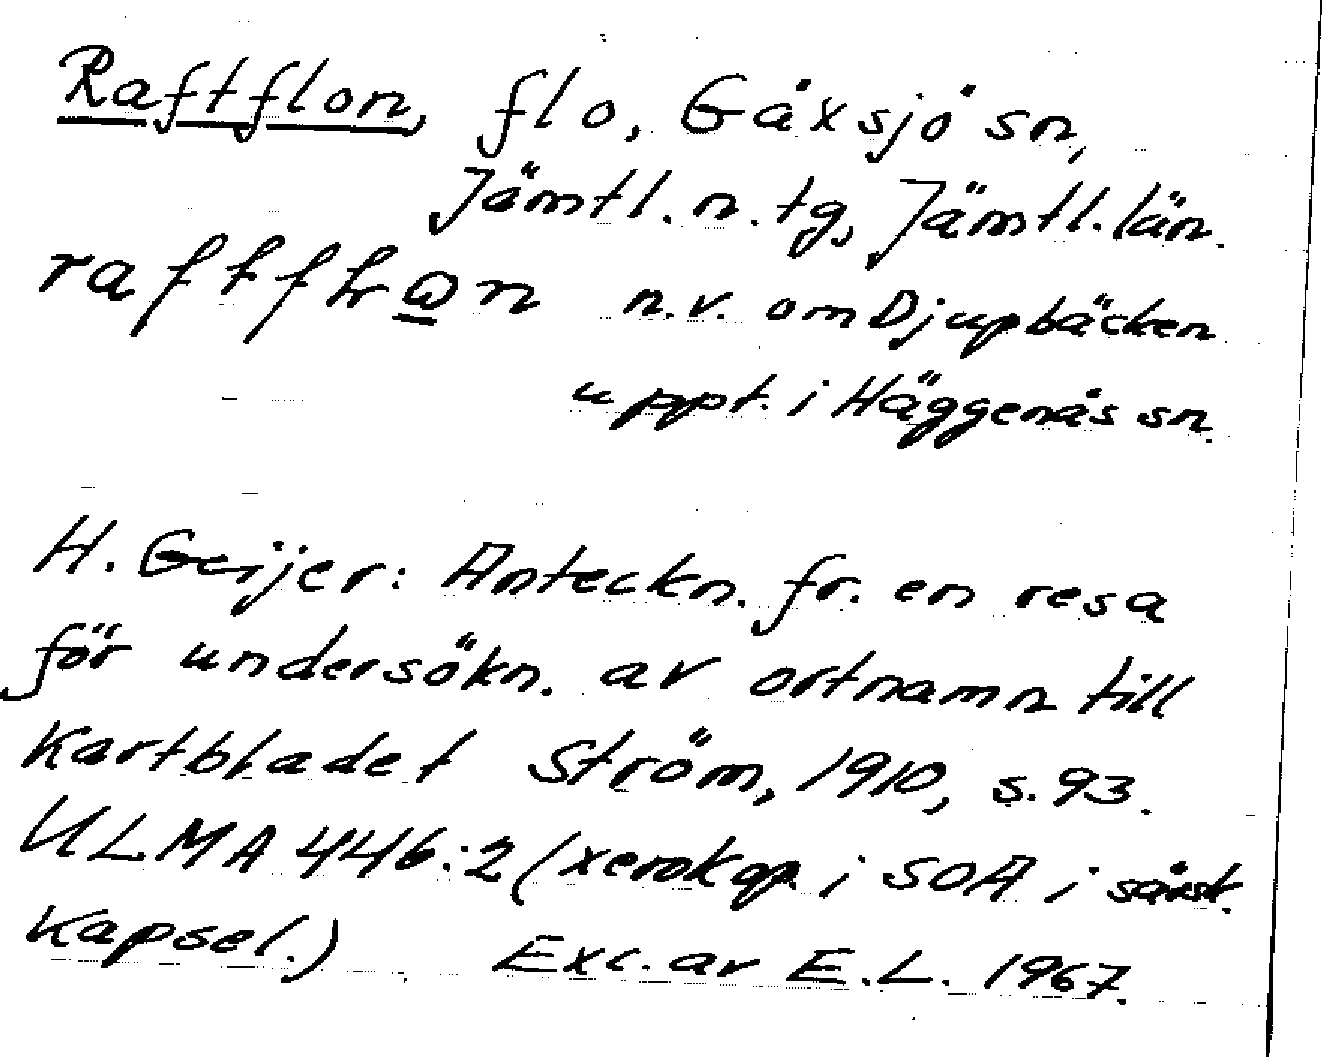 Raftflon, flo, Gåxsjö sn,
Jämtl. n. tg, Jämtl. län.
n.v. om Djupbäcken
uppt. i Häggenås sn.
H. Geijer: Anteckn. fr. en resa
för undersökn. av ortnamn till
kartbladet Ström, 1910, s. 93.
ULMA 446:2 (xerokop. i SOA i särsk.
kapsel.) Exc. av E.L. 1967.